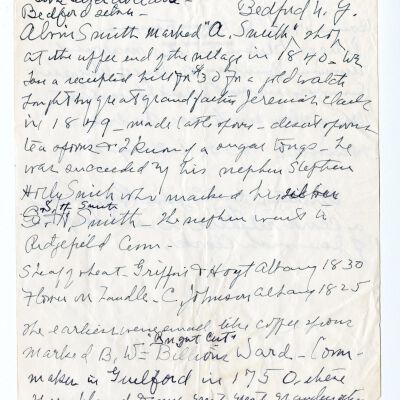 Bedford N. Y.
Bedford
Alvin Smith marked "A. Smith," shop
at the upper end of the village in 1840 - We
have a receipted bill for $30 for a gold watch
bought by great grandfather Jeremiah Clark
in 1849 - made tablespoons - desert spoons
tea spoons & I know of a sugar tongs - he
was succeeded by his nephew Stephen
Holly Smith who marked his silver
S. H. Smith
Smith - The nephew went to
Ridgefield Conn -
Sheaf of wheat Griffin & Hoyt Albany 1830
Flower on handle - C. Johnson Albany 1825
The earliest were small like coffee spoons
"Bright Cut"
marked B. W = Billious Ward - Conn -
maker in Guilford in 1750, where
great great grandmother